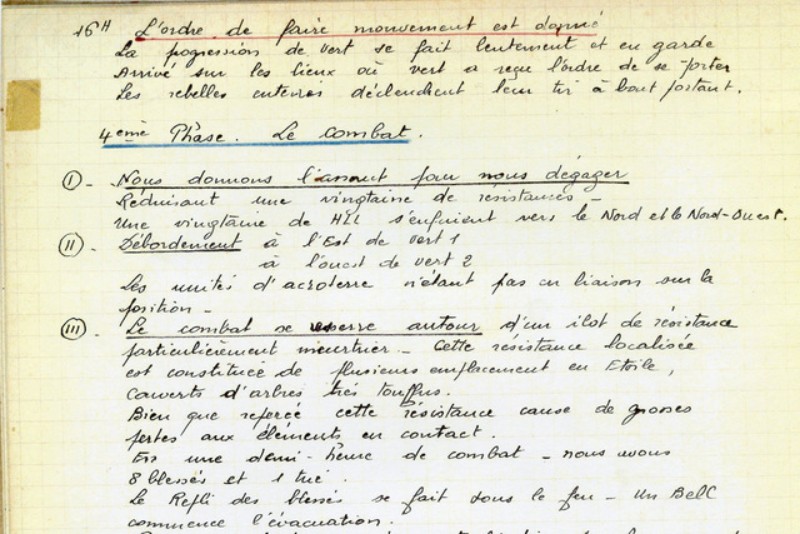 16H L'ordre de faire mouvement est donné
La pogression de vert se fait lentement et en garde
Arrivé sur les lieux où vert a reçu l'ordre de se porter
Les rebelles enterrés déclenchent leur tir à bout portant.
4eme Phase. Le combat.
I - Nous donnons l'assaut pour nous dégager
Réduisant une vingtaine de résistances -
Une vingtaine de HLL s'enfuient vers le Nord et le Nord-Ouest.
II - Débordement à l'Est de vert 1
à l'ouest de vert 2
Les unités d'acroterre n'étant pas en liaison sur la
position -
III - Le combat se resserre autour d'un ilot de résistance
particulièrement meurtrier - Cette résistance localisée
est constituée de plusieurs emplacement en Etoile,
couverts d'arbres très touffus.
Bien que reperée cette résistance cause de grosses
pertes aux éléments en contact.
En une demi-heure de combat - nous avons
8 blessés et 1 tué.
Le Repli des blessés se fait sous le feu - Un Bell
commence l'évacuation.